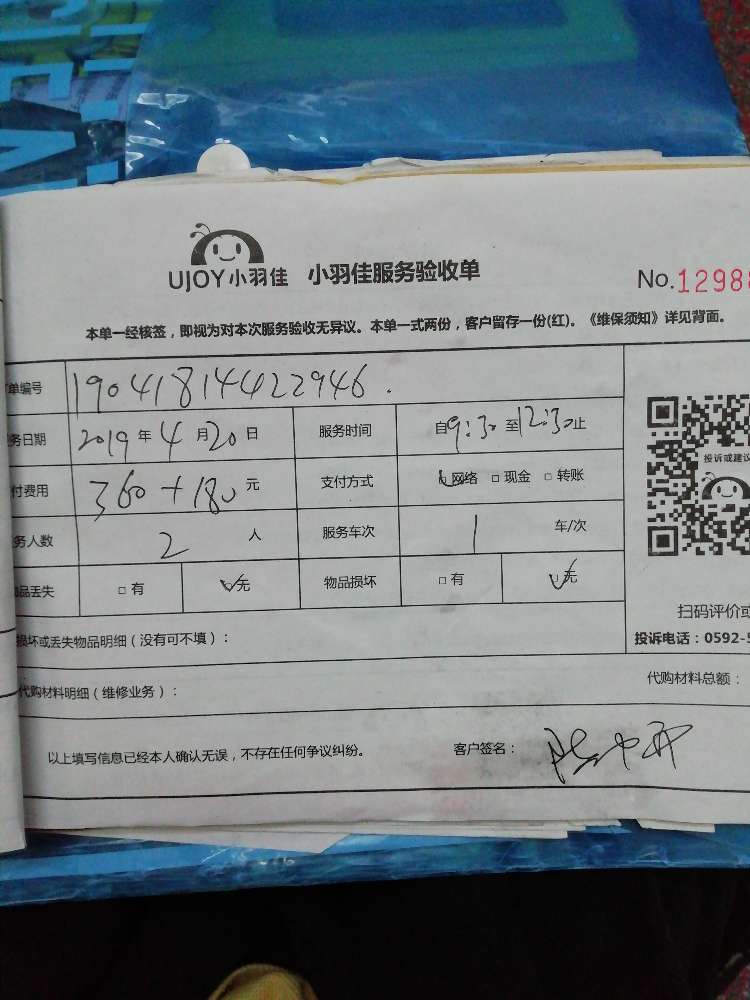 UJOY小羽佳 小羽佳服务验收单 No.1298
本单一经核签，即视为对本次服务验收无异议。本单一式两份，客户留存一份(红)。《维保须知》详见背面。
单编号 190418144422946.
务日期 2019年4月20日 服务时间 自9:30至12:30止
付费用 360+180元 支付方式 网络 现金 转账
投诉或建议
务人数 2人 服务车次 1 车/次
品丢失 有 无 物品损坏 有 无
扫码评价或
损坏或丢失物品明细（没有可不填）：
投诉电话：0592-5
代购材料明细（维修业务）：
代购材料总额：
以上填写信息已经本人确认无误，不存在任何争议纠纷。 客户签名：